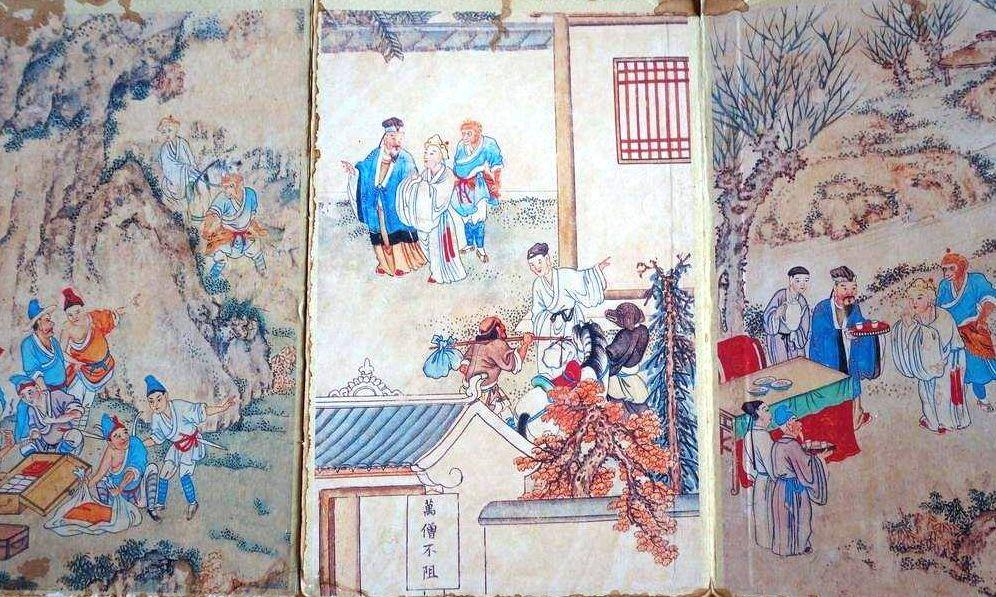 萬僧不阻